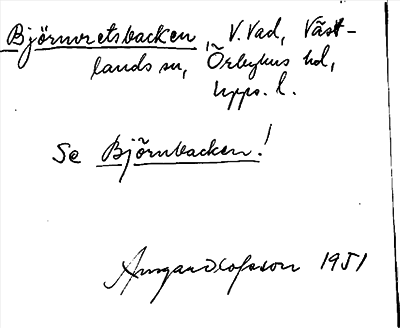 Björnvretsbacken, V. Vad, Väst-
lands sn, Örbyhus hd,
Upps. l.
Se Björnbacken!
Olofsson 1951